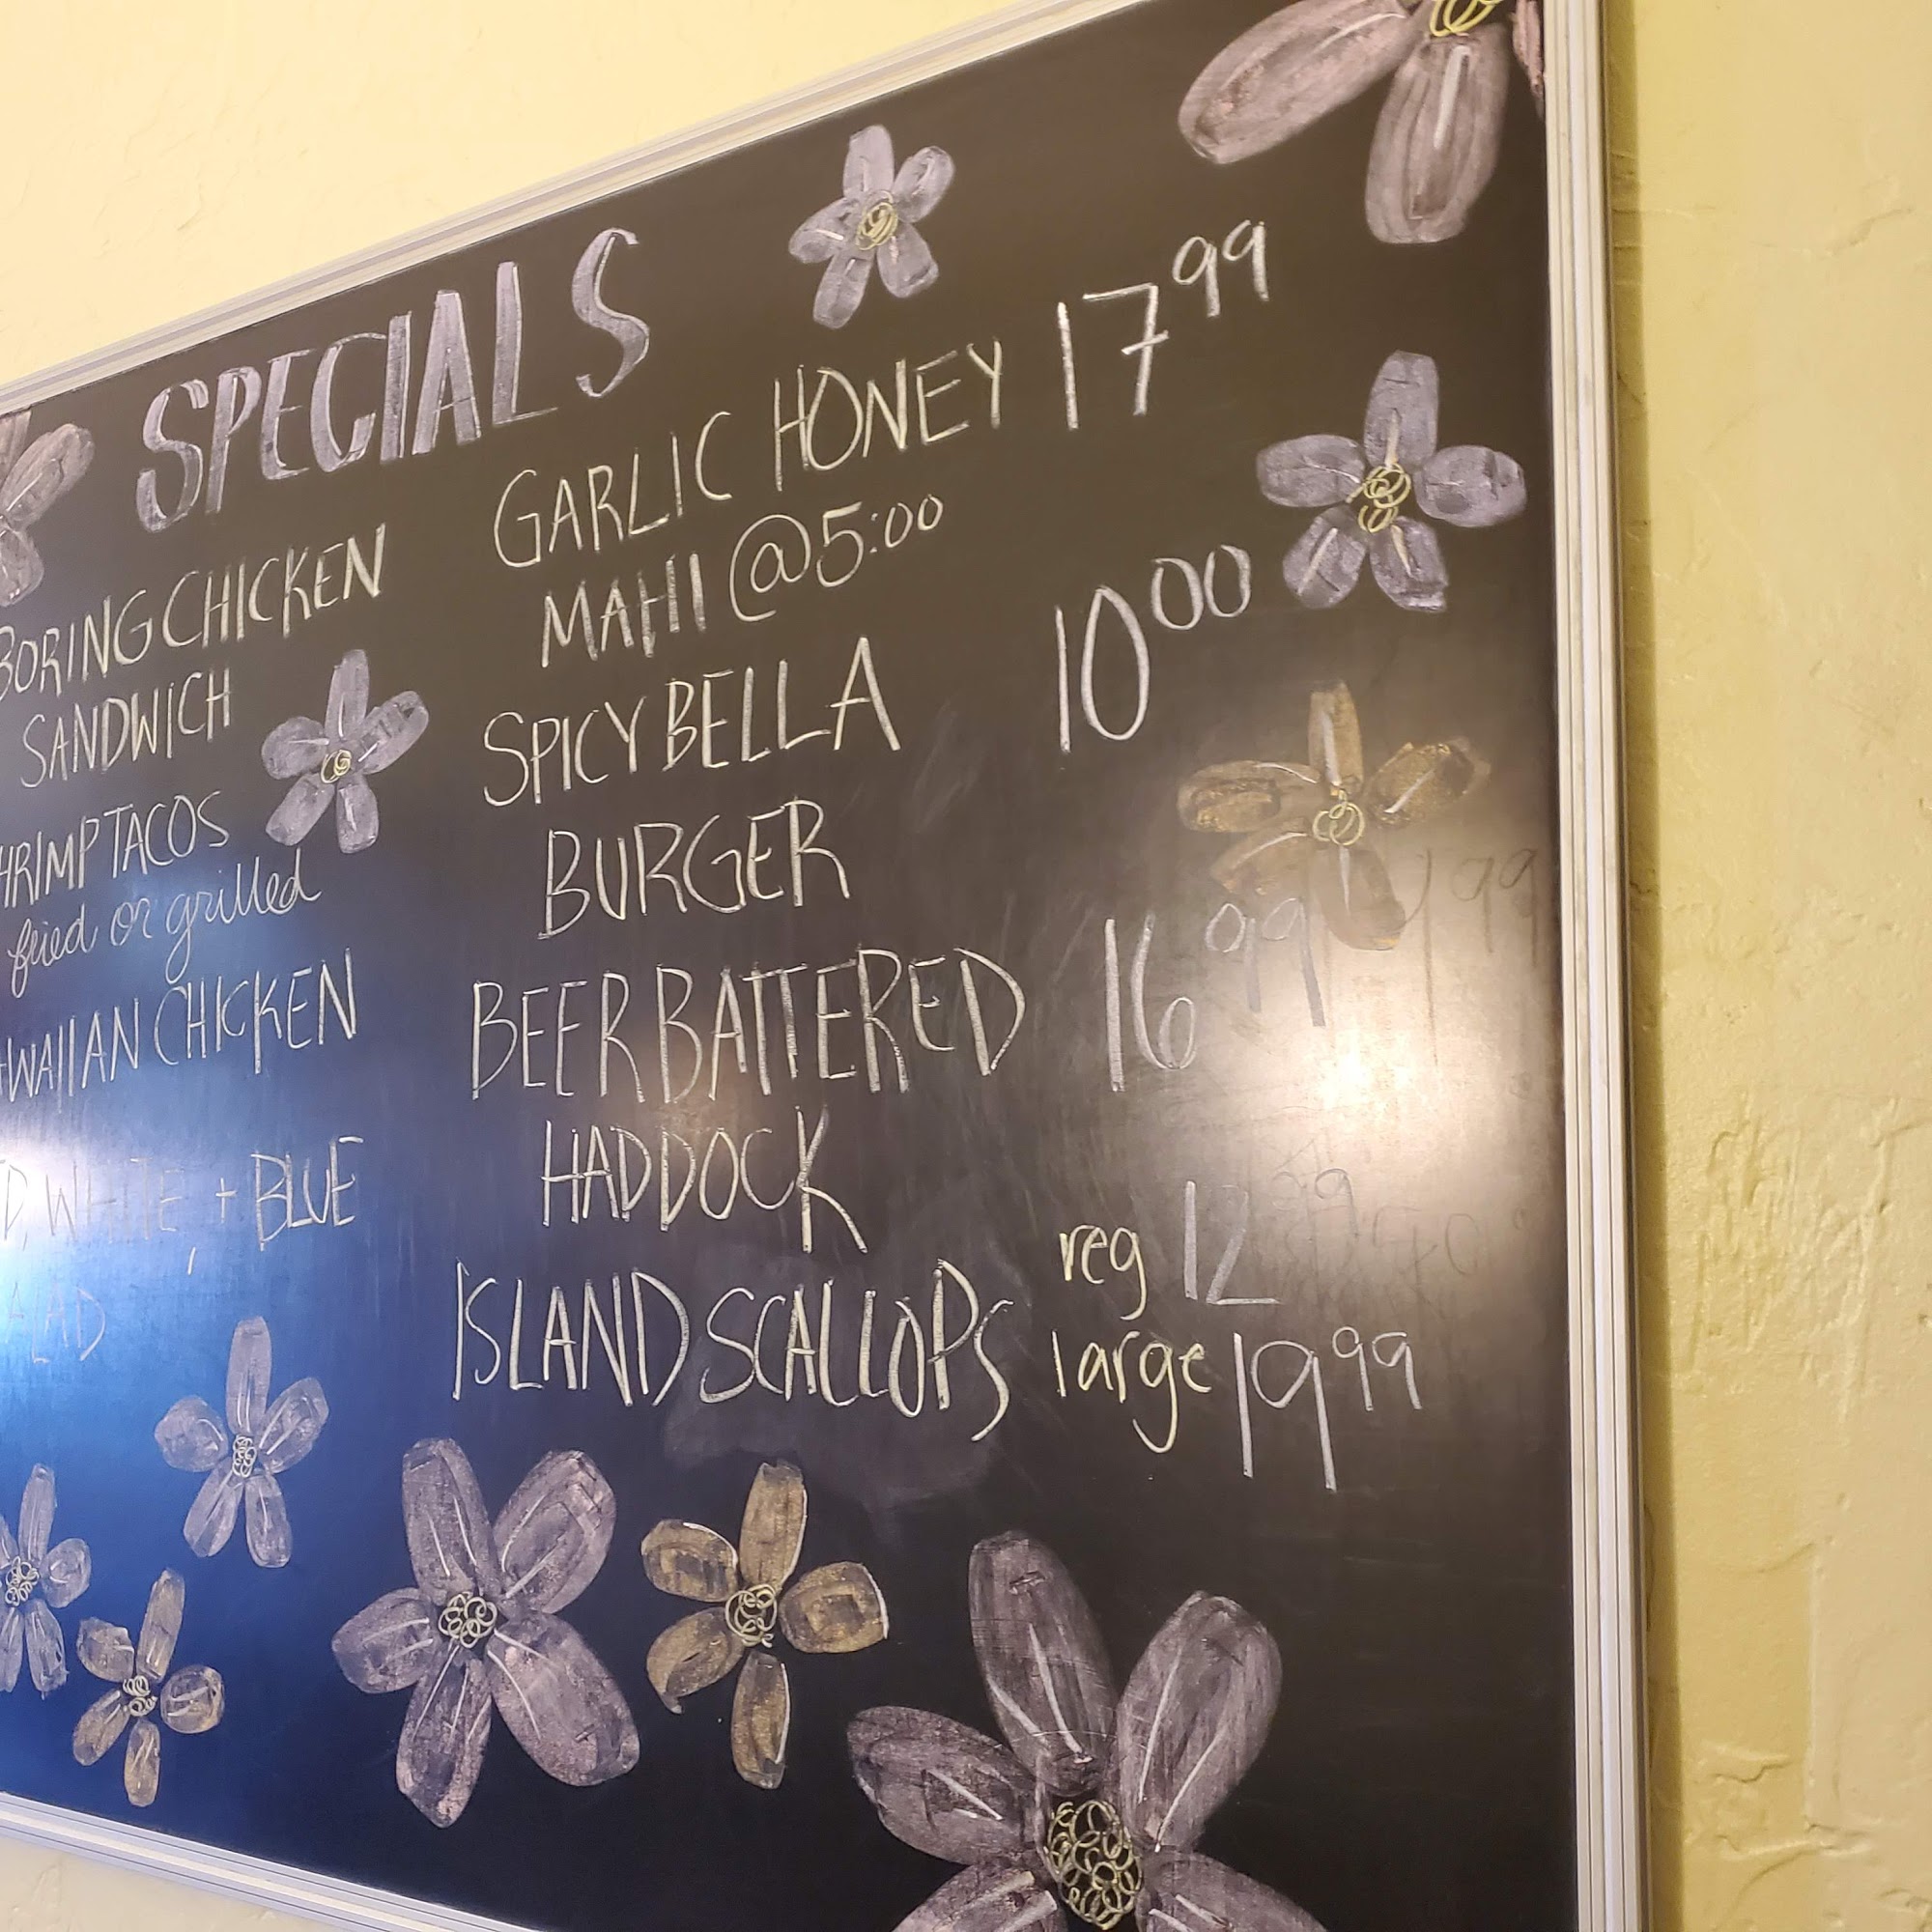 SPECIALS
BORING CHICKEN
SANDWICH
HRIMP TACOS
fried or grilled
WAIIAN CHICKEN
D, WHITE, + BLUE
ALAD
GARLIC HONEY 17 99
MAHI @ 5:00
SPICY BELLA 10 00
BURGER
BEER BATTERED 16 99
HADDOCK
ISLAND SCALLOPS reg 12 99
large 19 99